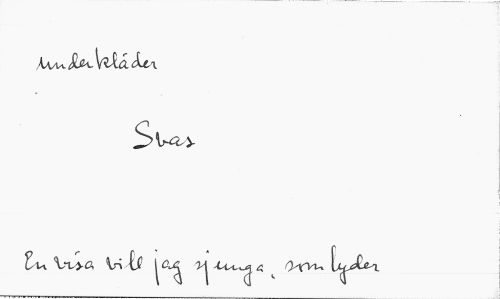 underkläder
Svas
En visa vill jag sjunga, som lyder